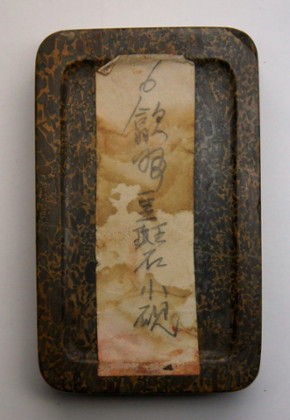 6 歙 豆斑石小硯